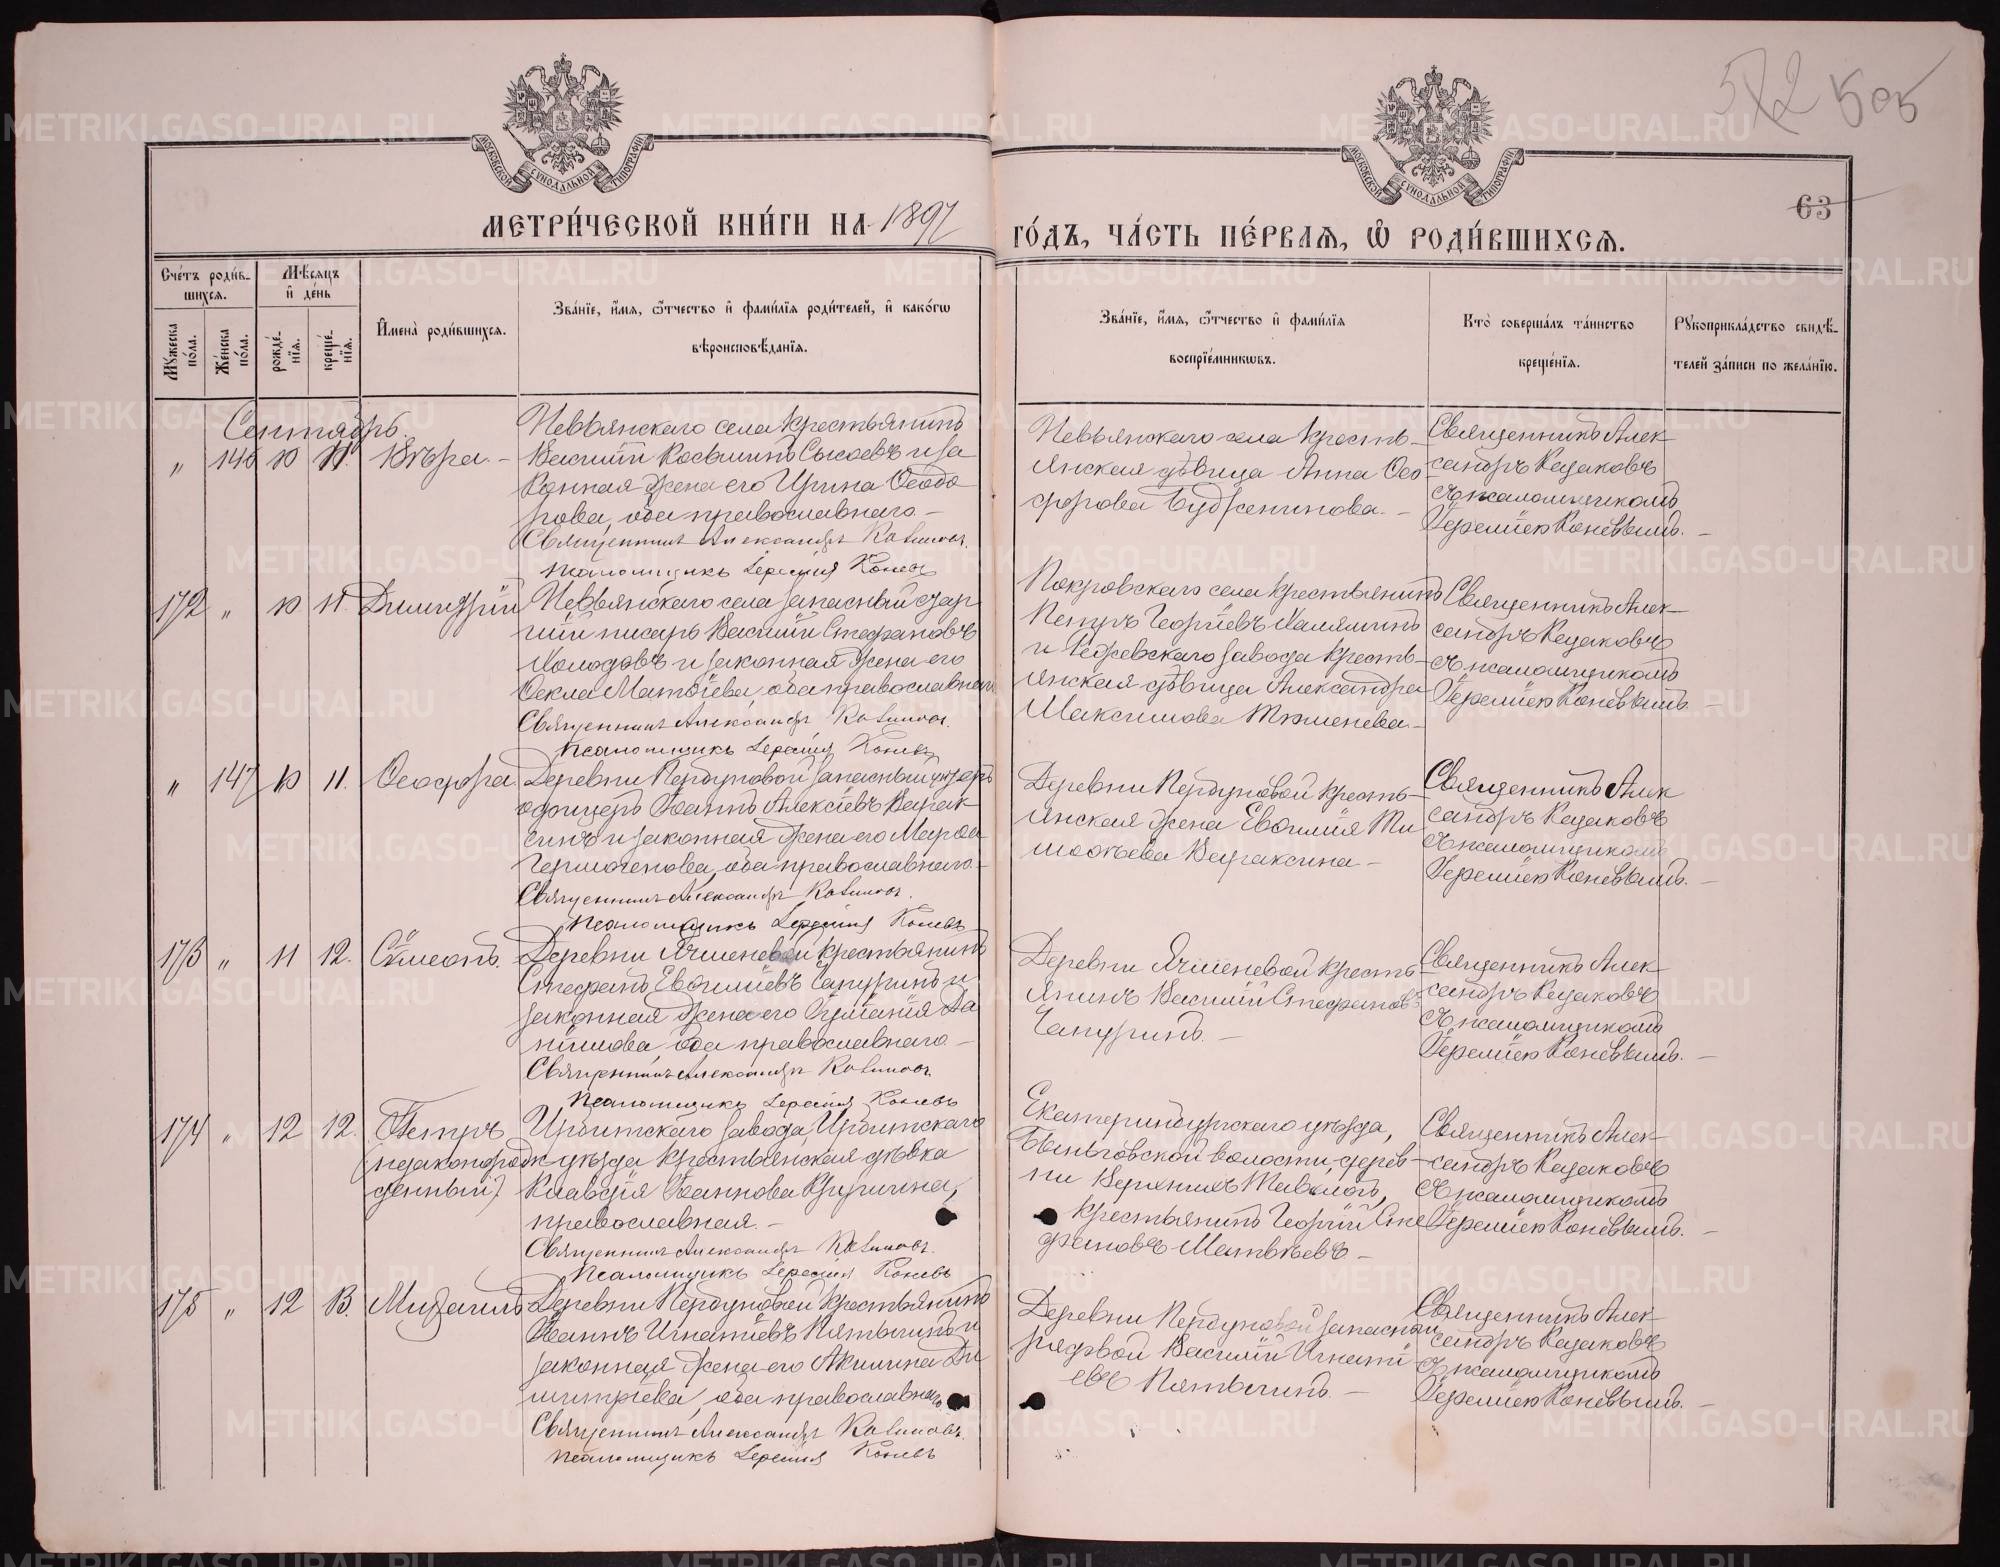 572 505
63
МОСКОВСКОЙ СУНОДАЛЬНОЙ ТИПОГРАФІИ
МОСКОВСКОЙ СУНОДАЛЬНОЙ ТИПОГРАФІИ
МЕТРИ́ЧЕСКОЙ КНИ́ГИ НА 1897 ГО́ДЪ, ЧА́СТЬ ПЕ́РВАЯ, Ѡ҆ РОДИ́ВШИХСЯ.
Сче́тъ роди́в-
шихся.
Мѣ́сяцъ
и҆ де́нь
Мꙋ́жеска по́ла.
Же́нска по́ла.
рожде́-
нїя.
креще́-
нїя.
И҆мена̀ роди́вшихся.
Зва́нїе, и҆́мя, ѻ҆́тчество и҆ фами́лїя роди́телей, и҆ како́гѡ
вѣроисповѣ́данїя.
Зва́нїе, и҆́мя, ѻ҆́тчество и҆ фами́лїя
воспрїе́мникѡвъ.
Кто̀ соверша́лъ та́инство
креще́нїя.
Рꙋкоприкла́дство свидѣ́-
телей за́писи по жела́нїю.
Сентябрь.
" 146 10 11. Вѣра. -
Невьянскаго села крестьянинъ
Василій Косьминъ Сысоевъ и за
конная жена его Ирина Ѳеодо
рова, оба православнаго. -
Священникъ Александръ Казаковъ.
Псаломщикъ Іеремія Коневъ
Невьянскаго села кресть-
янская дѣвица Анна Ѳео
дорова Будженинова. -
Священникъ Алек
сандръ Казаковъ
съ псаломщикомъ
Іереміею Коневымъ. -
172 " 10 11. Димитрій
Невьянскаго села запасный стар
шій писарь Василій Стефановъ
Холодовъ и законная жена его
Ѳекла Матѳіева, оба православнаго
Священникъ Александръ Казаковъ.
Псаломщикъ Іеремія Коневъ
Покровскаго села крестьянинъ
Петръ Георгіевъ Халяминъ
и Режевскаго завода кресть-
янская дѣвица Александра
Максимова Тюменева. -
Священникъ Алек-
сандръ Казаковъ
съ псаломщикомъ
Іереміею Коневымъ. -
" 147 10 11. Ѳеодора.
Деревни Первуновой запасный унтеръ
офицеръ Іоаннъ Алексіевъ Ваган
синъ и законная жена его Марѳа
Гермогенова, оба православнаго. -
Священникъ Александръ Казаковъ.
Псаломщикъ Іеремія Коневъ
Деревни Первуновой кресть-
янская жена Евѳимія Ти
моѳѣева
Священникъ Алек
сандръ Казаковъ
съ псаломщикомъ
Іереміею Коневымъ. -
173 " 11 12. Сѵмеонъ.
Деревни Ячменевой крестьянинъ
Стефанъ Евѳиміевъ Чапуринъ и
законная жена его Іуліанія Да
ніилова, оба православнаго. -
Священникъ Александръ Казаковъ.
Псаломщикъ Іеремія Коневъ
Деревни Ячменевой кресть-
янинъ Василій Стефановъ
Чапуринъ. -
Священникъ Алек-
сандръ Казаковъ
съ псаломщикомъ
Іереміею Коневымъ. -
174 " 12 12. Петръ
(незаконорож-
денный)
Ирбитскаго завода, Ирбитскаго
уѣзда крестьянская дѣвка
Клавдія Іоаннова
православная. -
Священникъ Александръ Казаковъ.
Псаломщикъ Іеремія Коневъ
Екатеринбургскаго уѣзда,
Быньговской волости, дерев-
ни Верхнихъ Тавологъ,
крестьянинъ Георгій Сте
фановъ Матвѣевъ -
Священникъ Алек-
сандръ Казаковъ
съ псаломщикомъ
Іереміею Коневымъ. -
175 " 12 13. Михаилъ
Деревни Первуновой крестьянинъ
Іоаннъ Игнатіевъ Пятыгинъ и
законная жена его Акилина Ди
митріева, оба православнаго
Священникъ Александръ Казаковъ.
Псаломщикъ Іеремія Коневъ
Деревни Первуновой запасной
рядовой Василій Игнаті
евъ Пятыгинъ. -
Священникъ Алек-
сандръ Казаковъ
съ псаломщикомъ
Іереміею Коневымъ. -
METRIKI.GASO-URAL.RU